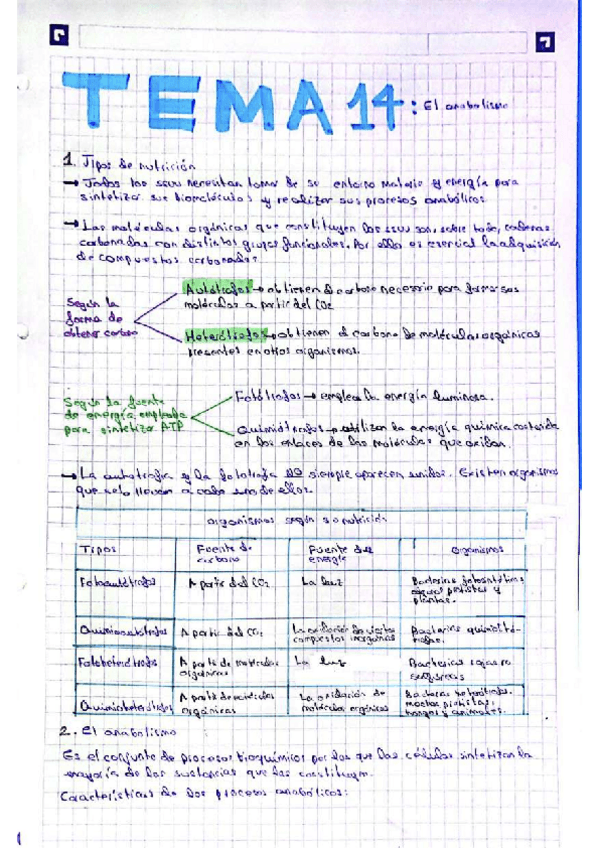 TEMA 14: El anabolismo
1. Tipos de nutrición
→ Todos los seres necesitan tomar de su entorno materia y energía para
sintetizar sus biomoléculas y realizar sus procesos anabólicos.
→ Las moléculas orgánicas que constituyen los seres son, sobre todo, cadenas
carbonadas con distintos grupos funcionales. Por ello es esencial la adquisición
de compuestos carbonados.
Según la
forma de
obtener carbono
Autótrofos → obtienen el carbono necesario para formar sus
moléculas a partir del CO2
Heterótrofos → obtienen el carbono de moléculas orgánicas
presentes en otros organismos.
Según la fuente
de energía empleada
para sintetizar ATP
Fotótrofos → emplean la energía luminosa.
Quimiótrofos → utilizan la energía química contenida
en los enlaces de las moléculas que oxidan.
→ La autotrofia y la fototrofia NO siempre aparecen unidos. Existen organismos
que solo llevan a cabo uno de ellos.
Organismos según su nutrición
Tipos | Fuente de carbono | Fuente de energía | Organismos
Fotoautótrofos | A partir del CO2 | La luz | Bacterias fotosintéticas, algunos protistas y plantas.
Quimioautótrofos | A partir del CO2 | La oxidación de ciertos compuestos inorgánicos | Bacterias quimiosintéticas.
Fotoheterótrofos | A partir de moléculas orgánicas | La luz | Bacterias rojas no
Quimioheterótrofos | A partir de moléculas orgánicas | La oxidación de moléculas orgánicas | Bacterias heterótrofas, muchos protistas, hongos y animales.
2. El anabolismo
Es el conjunto de procesos bioquímicos por los que las células sintetizan la
mayoría de las sustancias que las constituyen.
Características de los procesos anabólicos: